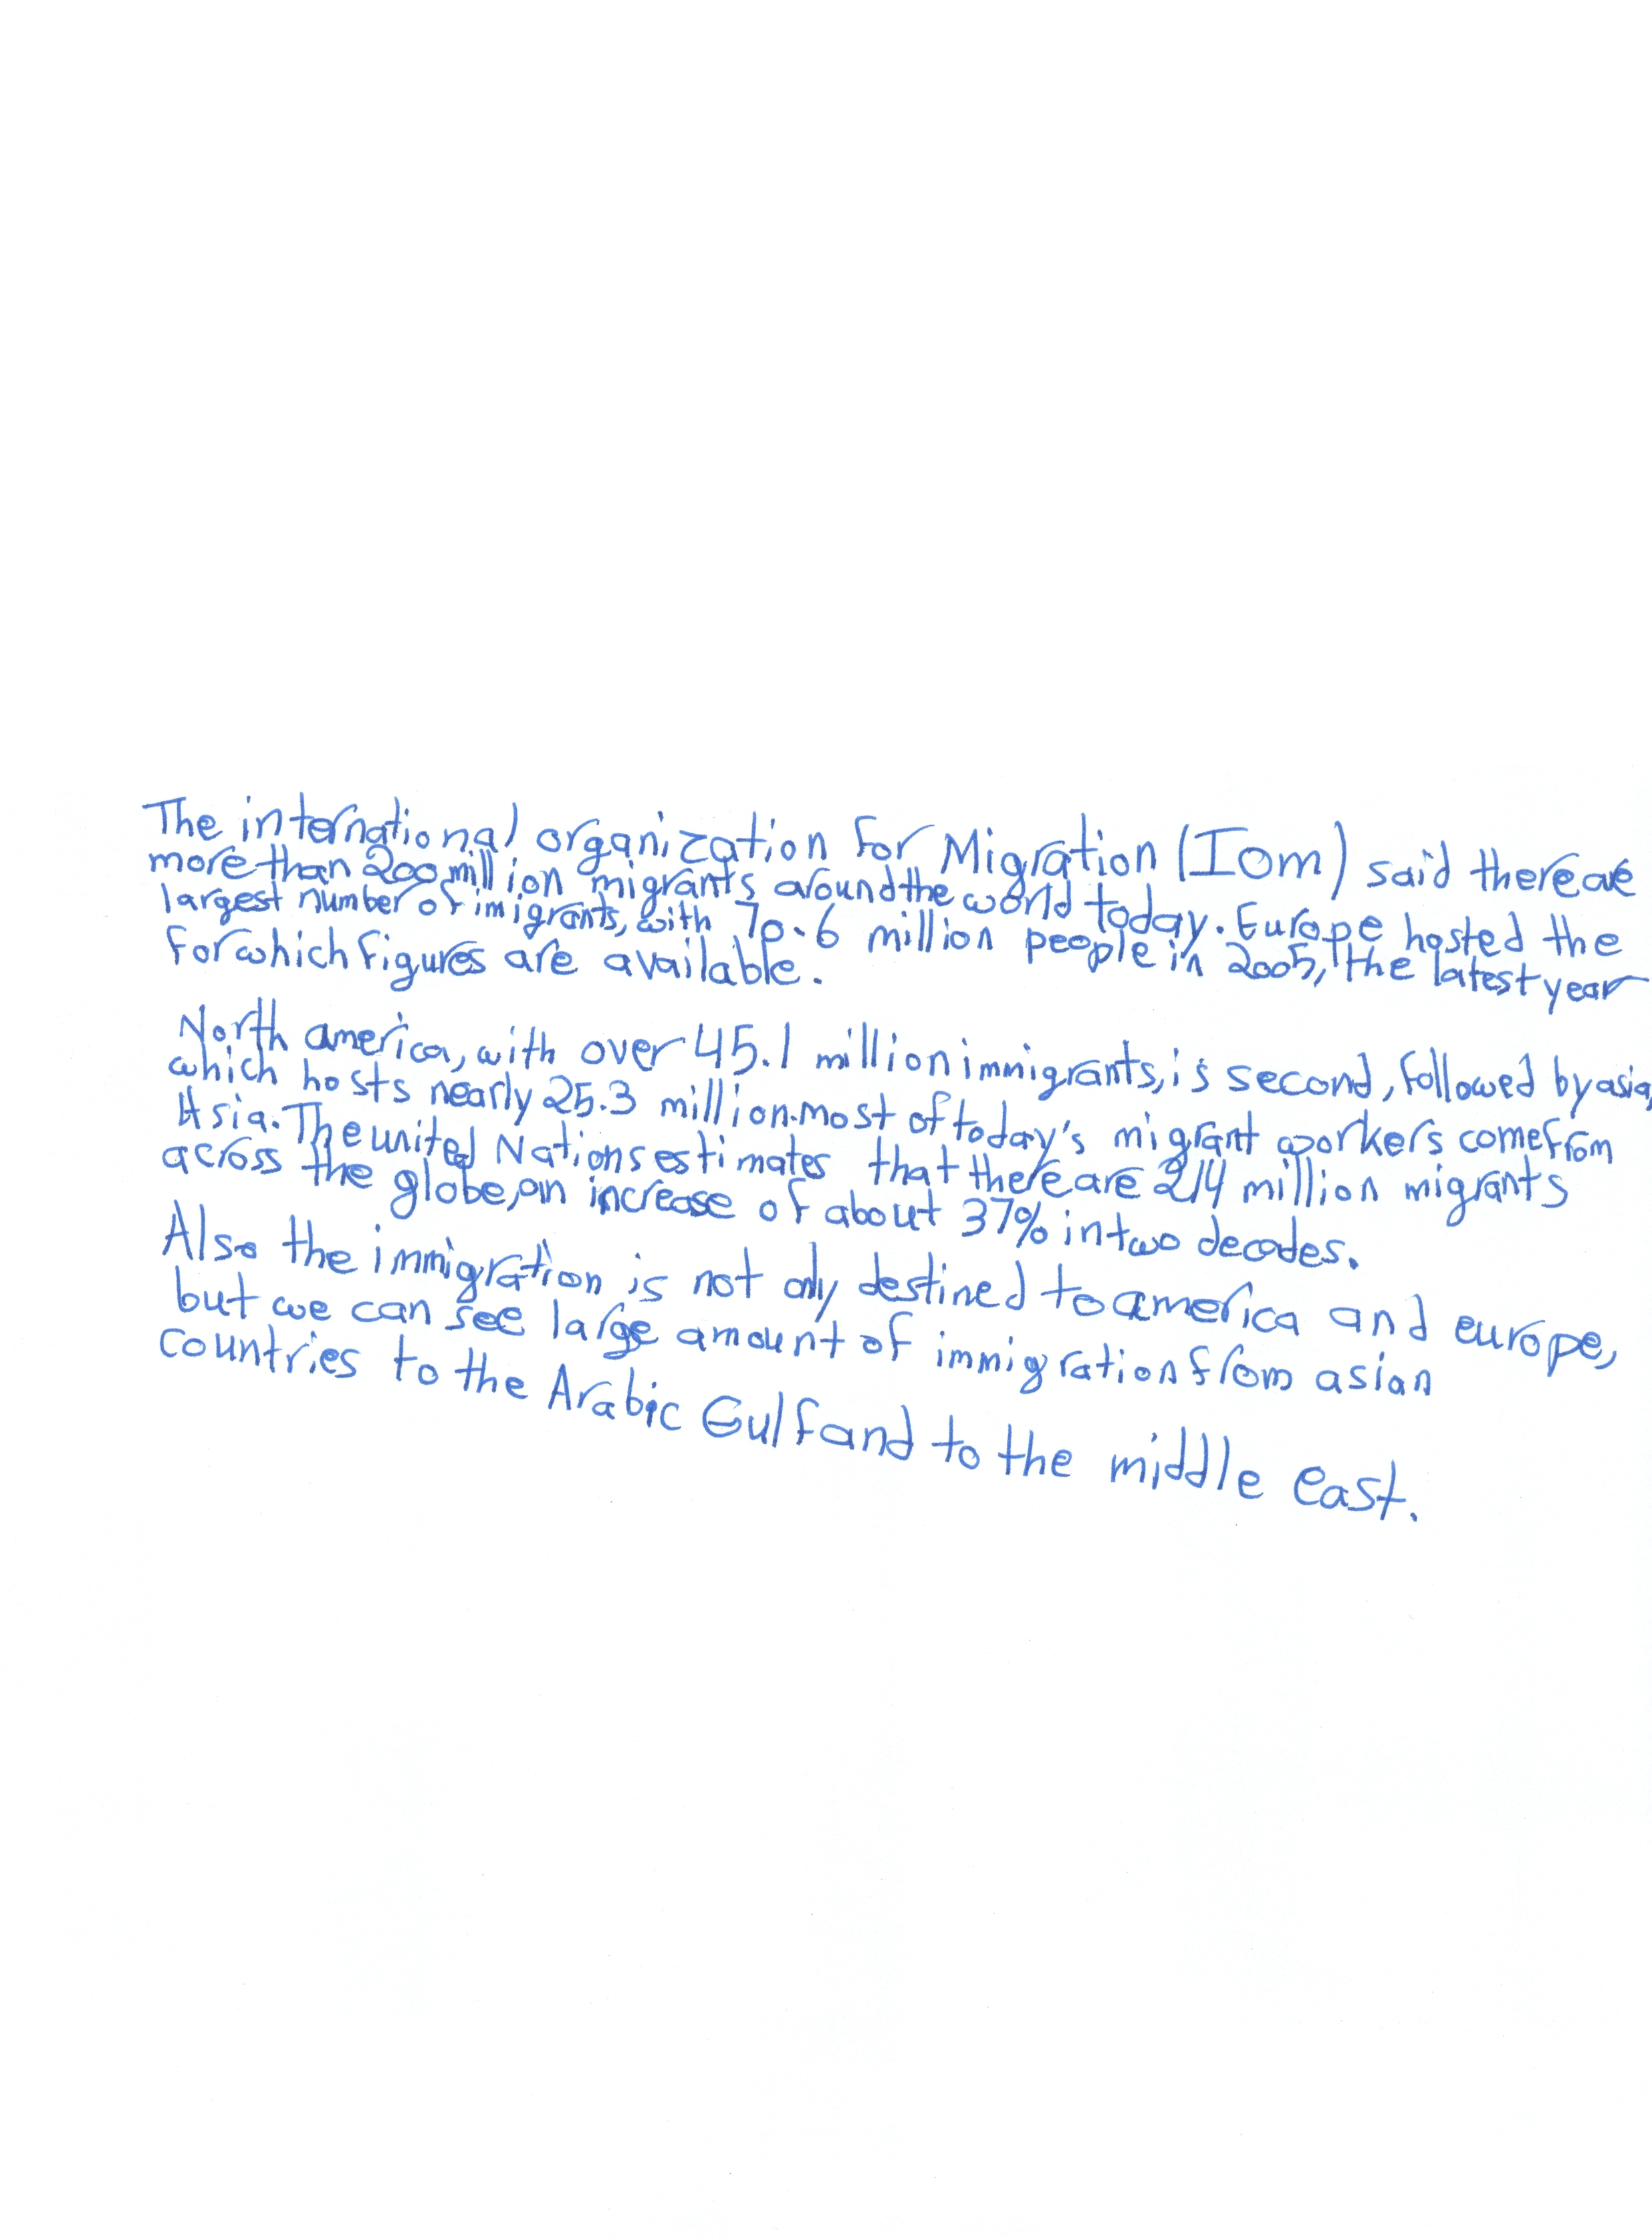 The international organization for Migration (Iom) said there are
more than 200 million migrants around the world today. Europe hosted the
largest number of imigrants, with 70.6 million people in 2005, the latest year
for which figures are available.
North america, with over 45.1 million immigrants, is second, followed by asia,
which hosts nearly 25.3 million. most of today's migrant workers come from
Asia. The united Nations estimates that there are 214 million migrants
across the globe, an increase of about 37% in two decades.
Also the immigration is not only destined to america and europe,
but we can see large amount of immigration from asian
countries to the Arabic Gulf and to the middle east.